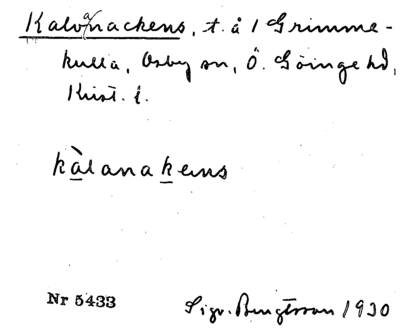 Kalvanackens, t. å 1 Grimme-
kulla, Osby sn, Ö. Göinge hd,
Krist. l.
kàlanakens
Nr 5433
Sigv. Bengtsson 1930